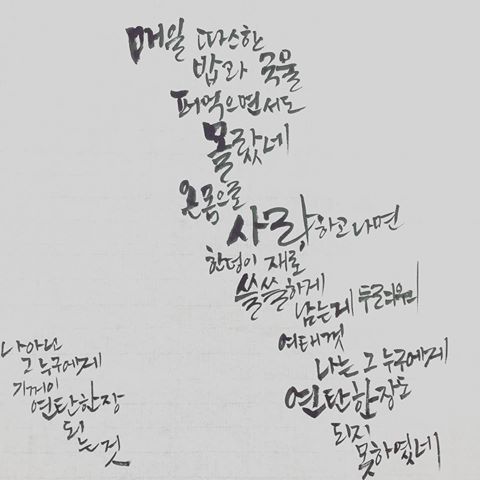 매일 따스한
밥과 국물
퍼먹으면서도
몰랐네
온몸으로
사랑하고 나면
한덩이 재로
쓸쓸하게
남는게 두려워
여태껏
나는 그 누구에게
연탄한장도
되지
못하였네
나 아닌
그 누구에게
기꺼이
연탄한장
되
는 것